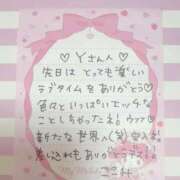 ♡Yさん♡
先日は とっても楽しい
ラブタイムを ありがとう
色々と いっぱいエッチな
ことしちゃったね! ウフフ
新たな世界へ(笑)
差し入れも ありがとうデス!
ここ